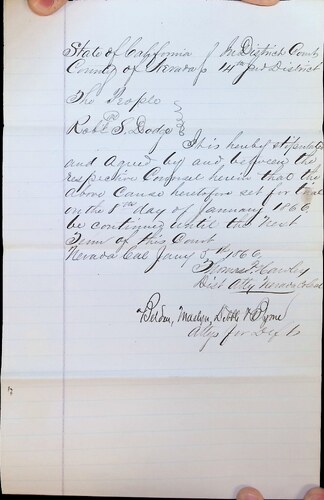 State of California } In District Court
County of Nevada } 14th Jud District
The People
vs
Robt S. Dodge
It is hereby stipulated
and agreed by and between the
respective Counsel herein that the
above Cause heretofore set for trial
on the day of January 1860,
be continued until the next
Term of this Court
Nevada Cal Jany 5th 1860.
Thomas P. Hawley
Dist Atty Nevada Co Cal
Belden, Dibble & Byrne
Attys for Deft